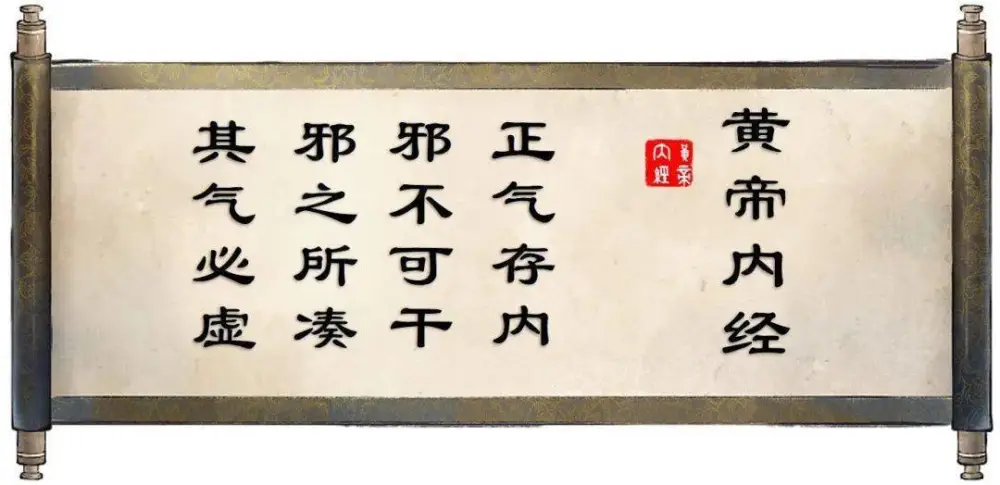 黄帝内经
黄帝内经
正气存内
邪不可干
邪之所凑
其气必虚